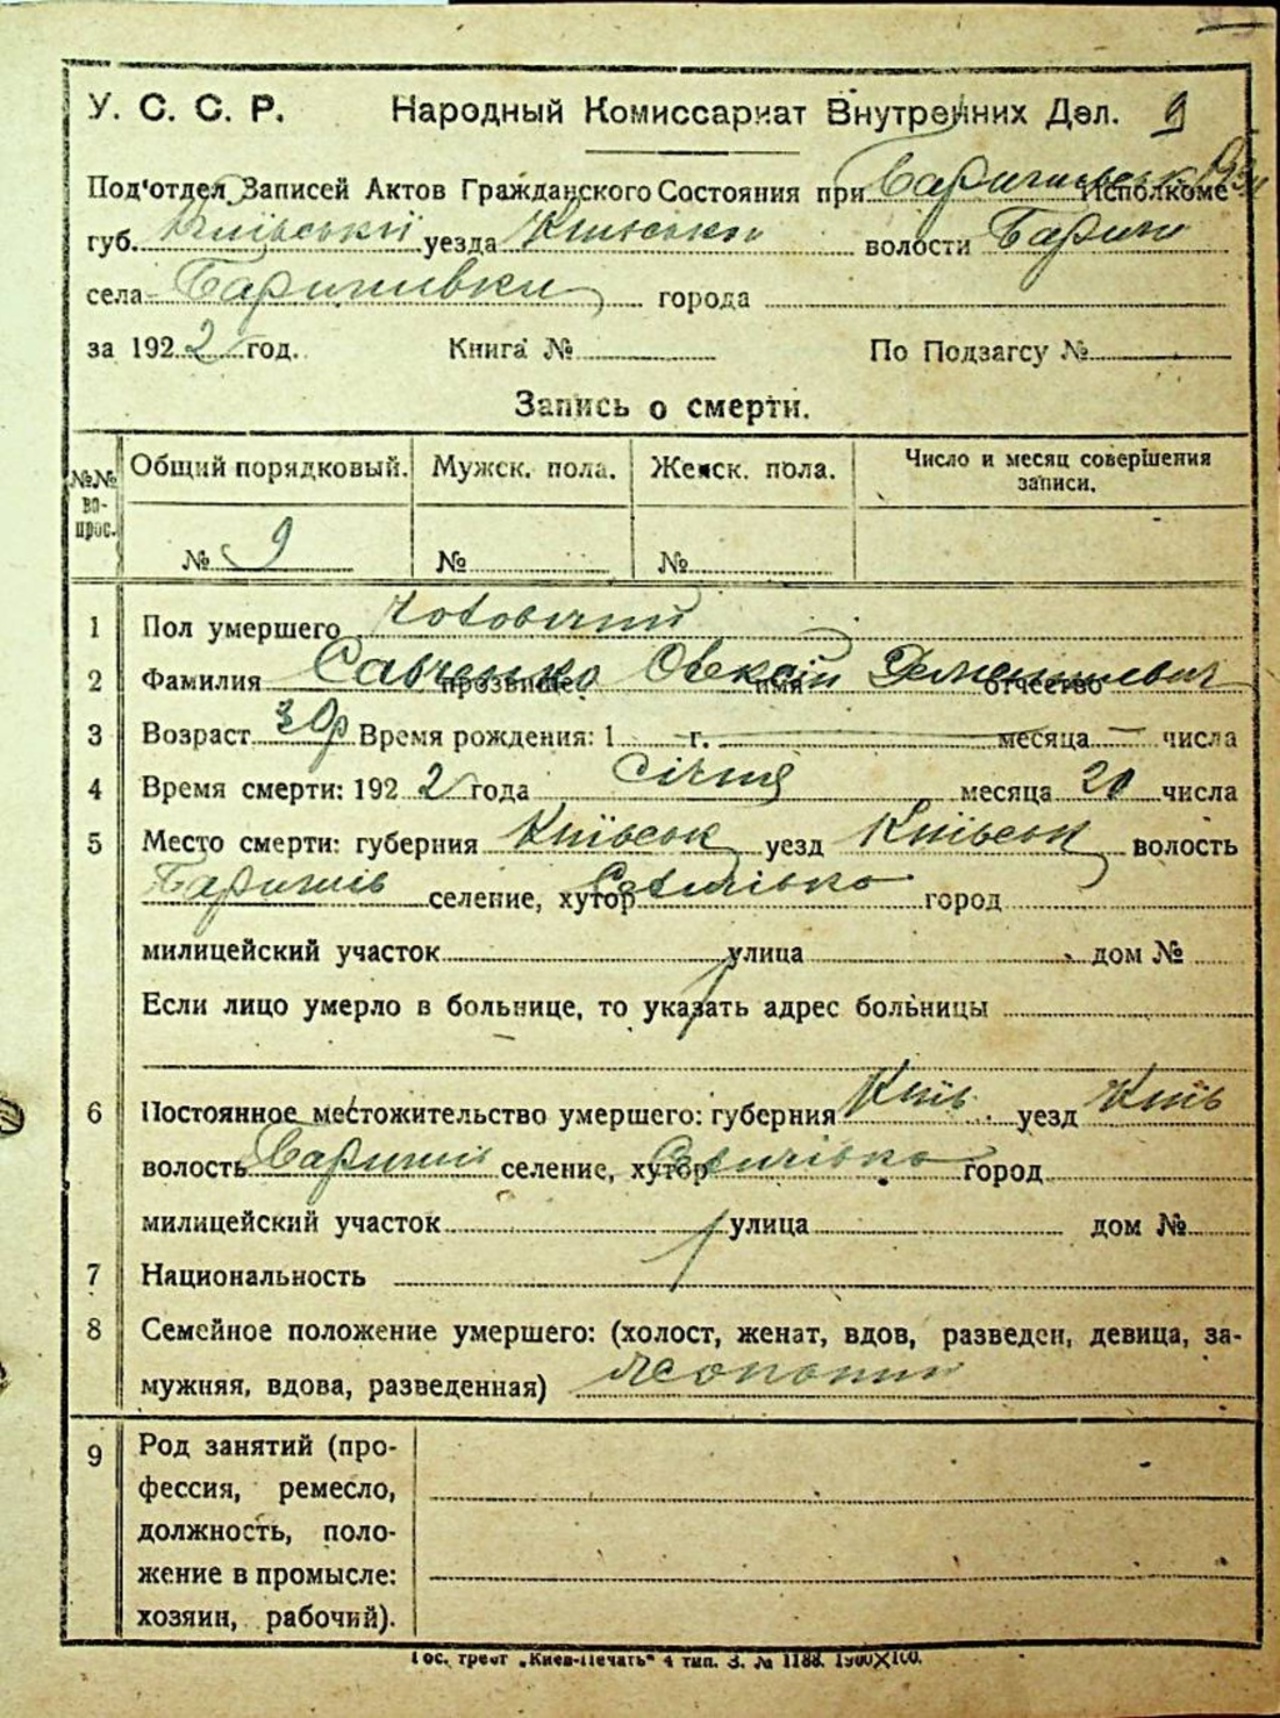 У. С. С. Р. Народный Комиссариат Внутренних Дел. 9
Под'отдел Записей Актов Гражданского Состояния при Исполкоме
губ. Київської уезда Київської волости Бариш
села Баришивки города
за 1922 год. Книга № По Подзагсу №
Запись о смерти.
№№ вопрос. Общий порядковый. Мужск. пола. Женск. пола. Число и месяц совершения записи.
№ 9 № №
1 Пол умершего чоловічий
2 Фамилия Савченко Олексій Дементіевич
прозвище имя отчество
3 Возраст 30р Время рождения: 1 г. — месяца — числа
4 Время смерти: 1922 года січня месяца 20 числа
5 Место смерти: губерния Київськ уезд Київськ волость
Баришів селение, хутор Селичівка город
милицейский участок улица дом №
Если лицо умерло в больнице, то указать адрес больницы
6 Постоянное местожительство умершего: губерния Київ уезд Київ
волость Баришів селение, хутор Селичівка город
милицейский участок улица дом №
7 Национальность
8 Семейное положение умершего: (холост, женат, вдов, разведен, девица, за-
мужняя, вдова, разведенная) жонатий
9 Род занятий (про-
фессия, ремесло,
должность, поло-
жение в промысле:
хозяин, рабочий).
Гос. трест „Киев-Печать" 4 тип. З. № 1188. 1900X100.